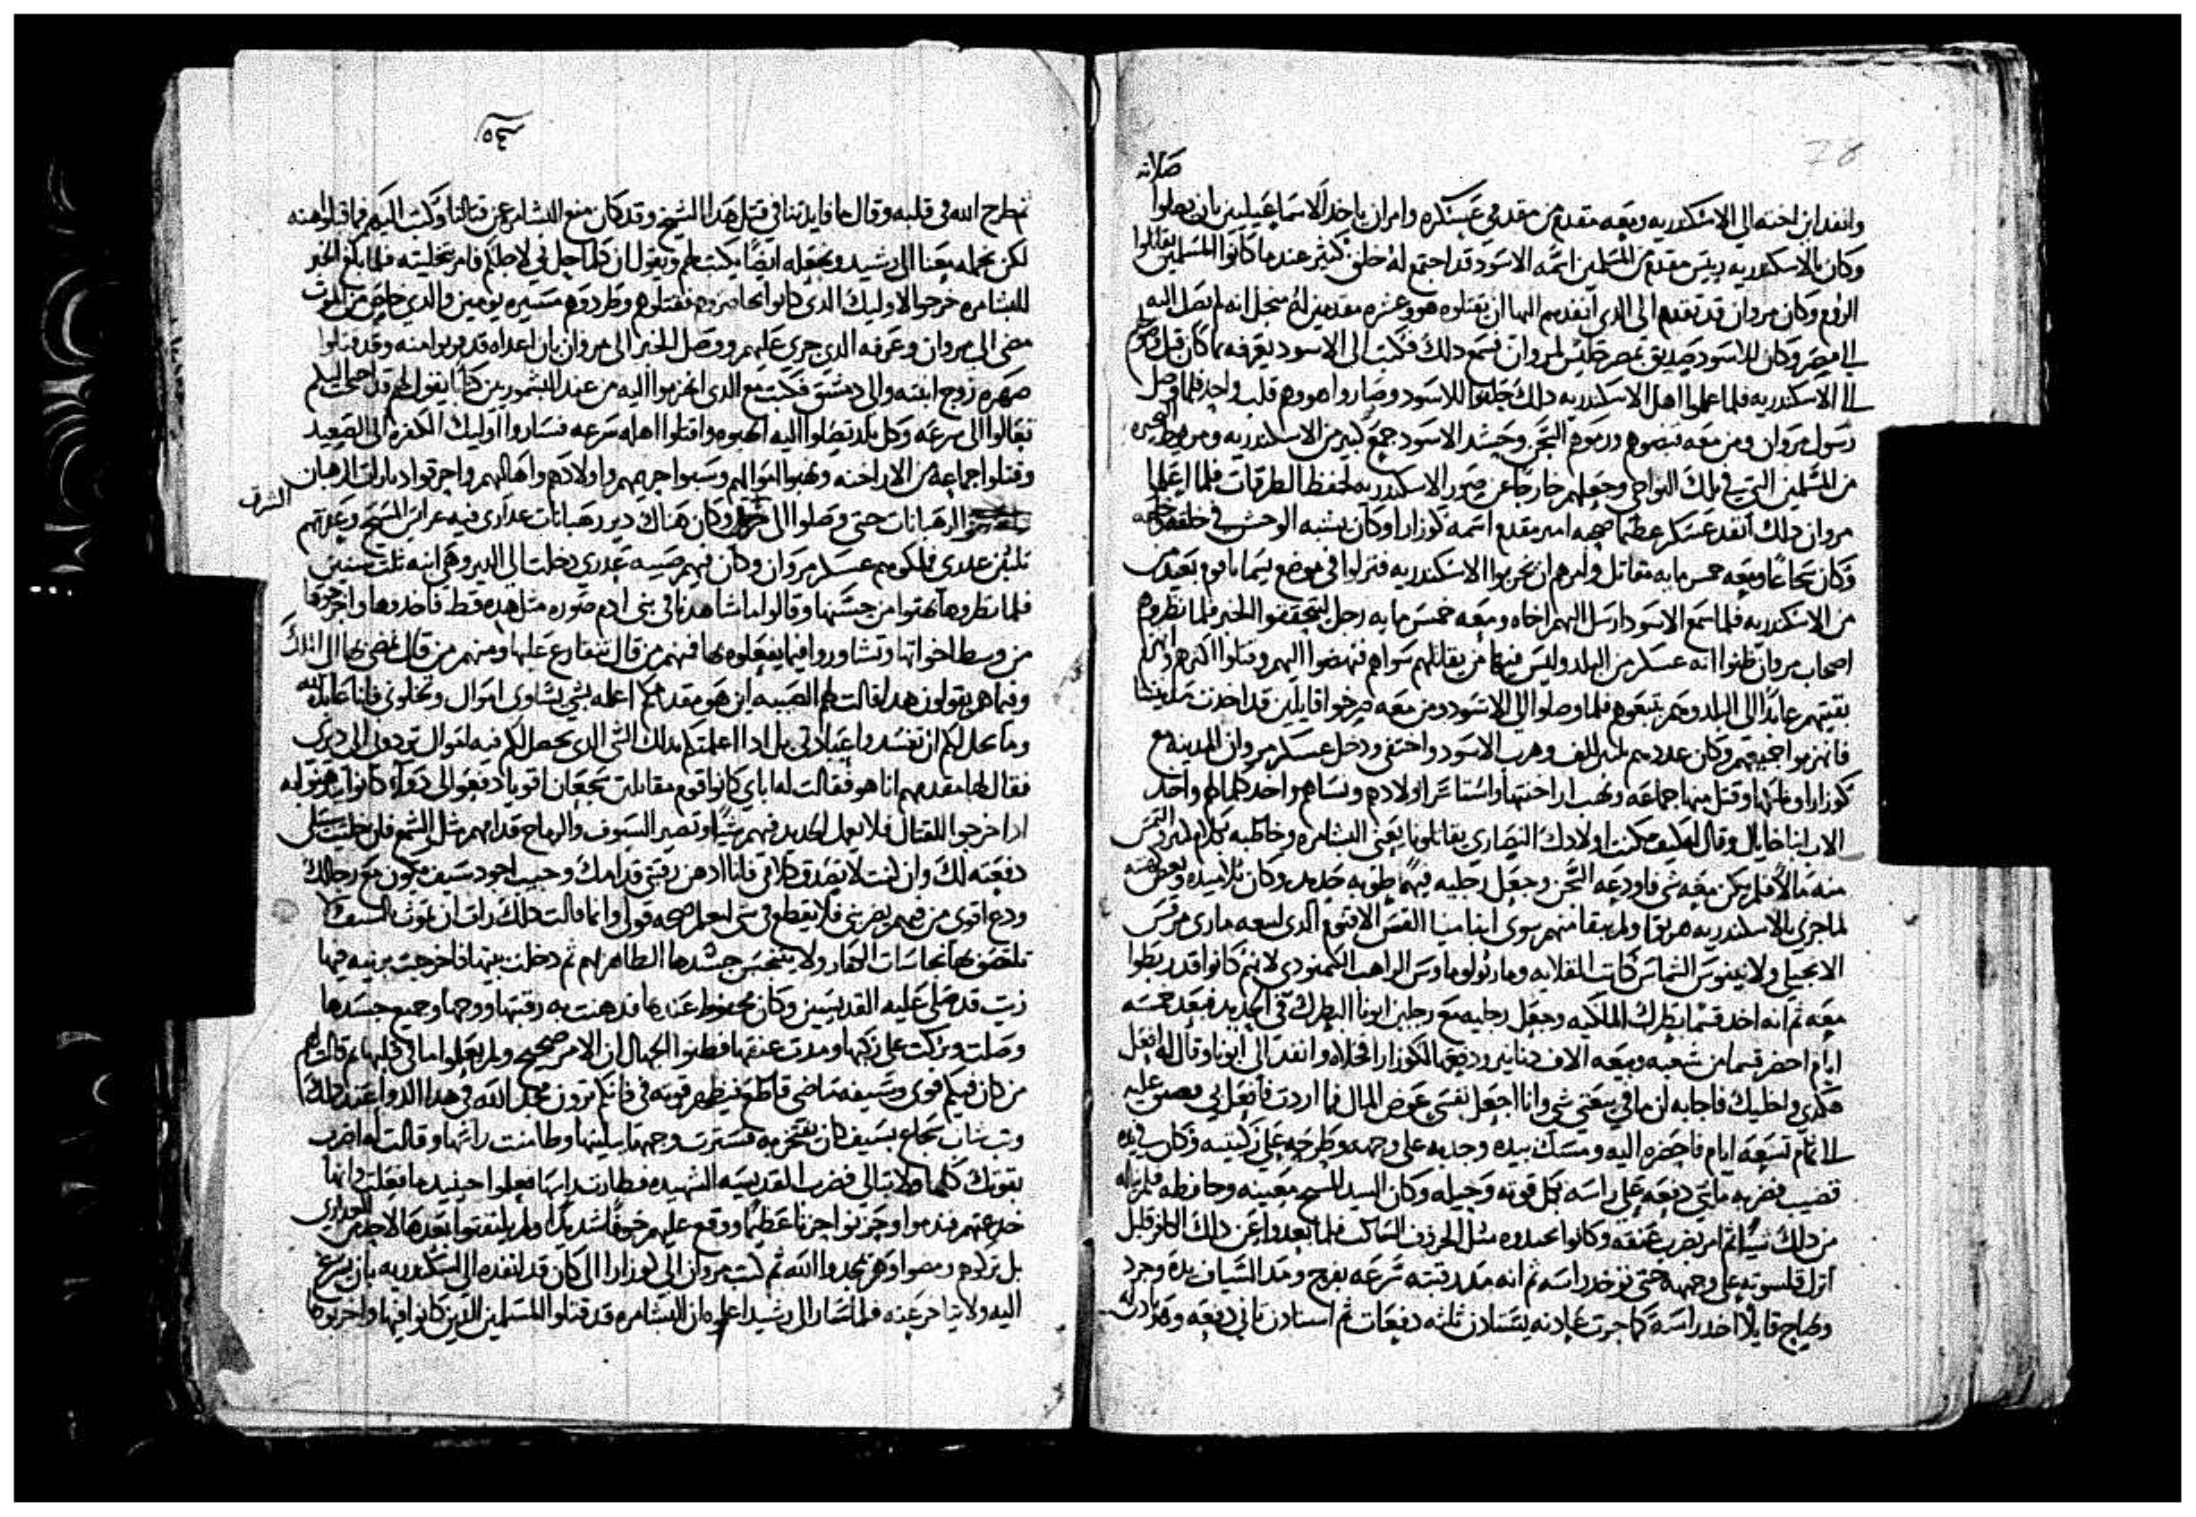 78
صلاته
وانفد ابن اخته الي الاسكندريه ومعه مقدم من مقدمي عسكره وامر ان ياخد الاسماعيليين بان يصلوا
وكان بالاسكندريه رييس مقدم من المسلمين اسمه الاسود قد اجتمع له خلق كثير عندما كانوا المسلمين يقاتلوا
الروم وكان مروان قد تقدم الي الدي انفدهم اليها ان يقتلوه هو وعشره مقدمين له من اجل انه لم يصل اليه
الي مصر وكان للاسود صديق بمصر جليس لمروان فسمع دلك فكتب الي الاسود يعرفه بما كان قبل
الي الاسكندريه فلما علموا اهل الاسكندريه دلك للاسود وصاروا هو وهم قلب واحد فلما وصل
رسول مروان ومن معه قبضوهم ورموهم السجن وحشد الاسود جمع كبير من الاسكندريه ومن
من المسلمين التي في تلك النواحي وجعلهم خارجا عن صور الاسكندريه لحفظ الطرقات فلما
مروان دلك انفد عسكر عظيما صحبه امير مقدم اسمه كوزارا وكان يشبه الوحش في خلقه
وكان شجاعا ومعه خمس مايه مقاتل وامرهم ان يخربوا الاسكندريه فنزلوا في موضع يسما
من الاسكندريه فلما سمع الاسود ارسل اليهم اخاه ومعه خمس مايه رجل ليتحققوا الخبر فلما نظروهم
اصحاب مروان ظنوا انه عسكر من البلد وليس فيها من يقاتلهم سواهم فنهضوا اليهم وقتلوا اكثرهم
بقيتهم عايدا الي البلد وهم يتبعوهم فلما وصلوا الي الاسود ومن معه صرخوا قايلين قد اخدت مدينتنا
فانهزموا جميعهم وكان عددهم الف وهرب الاسود واختفي ودخل عسكر مروان المدينه مع
كوزارا وملكها وقتل منها جماعه ونهب اراخنتها واستاسر اولادهم ونساهم واخد كلما لهم واخد
الاب انبا خايال وقال له كيف مكنت اولادك النصاري يقاتلونا يعني البشامره وخاطبه بكلام كتير والتمس
منه مالا فلم يكن معه شي فاودعه السجن وجعل رجليه فيهما طوبه حديد وكان تلاميده
لما جري بالاسكندريه هربوا ولم يبقا منهم سوي انبا مينا القس الاقنوم الدي لبيعه ماري مرقس
الانجيلي ولاتينوس الشماس كاتب القلايه
معه ثم انه اخد قسما بطرك الملكيه وجعل رجليه مع رجلين ابونا البطرك في الحديد فبعد خمسه
ايام احضر قسما من شعبه وبيعه الاف دنانير ودفعها لكوزارا فخلاه وانفد الي ابونا وقال له افعل
هكدي واخليك فاجابه ان ما في بيعتي شي وانا اجعل نفسي عوض المال فما اردت فافعل بي
الي تمام تسعه ايام فاحضره اليه ومسك بيده وجدبه علي وجهه وطرحه علي ركبتيه وكان في يده
قضيب فضربه مايتي دفعه علي راسه بكل قوته وحيله وكان السيد المسيح معينه وحافظه فلم يناله
من دلك شيا ثم امر بضرب عنقه وكانوا يجدبوه مثل الخروف الساكت فلما بعدوا عن دلك الكافر قليل
انزل قلنسوته علي وجهه حتي توخد راسه ثم انه مد رقبته بسرعه بفرح ومد السياف يده وجرد
وصاح قايلا اخد راسه كما جرت عادته يستادن ثلثه دفعات ثم استادن تاني دفعه
فطرح الله في قلبه وقال ما فايدتنا في قتل هدا الشيخ وقد كان منع البشامره عن قتالنا وكتب اليهم فما قبلوا منه
لكن نحمله معنا الي رشيد ونجعله ايضا يكتب لهم ويقول ان كلما حل بي لاجلكم فامر بتخليته فلما بلغ الخبر
للبشامره خرجوا لاوليك الدي كانوا يحاصروهم فقتلوهم وطردوهم مسيره يومين والدي خلص من الموت
مضي الي مروان وعرفه الدي جري عليهم ووصل الخبر الي مروان بان اعداه قد قربوا منه وقد قتلوا
صهره زوج ابنته والي دمشق فكتب مع الدي انهزموا اليه من عند البشموريين كتابا يقول لهم قد احتجت اليكم
تعالوا الي بسرعه وكل بلد تصلوا اليه انهبوه واقتلوا اهله بسرعه فساروا اوليك الكفره الي الصعيد
وقتلوا جماعه من الاراخنه ونهبوا اموالهم وسبوا حريمهم واولادهم واهاليهم واحرقوا ديارات الرهبان
الشرق
والرهبانات حتي وصلوا الي وكان هناك دير رهبانات عداري فيه عرايس المسيح وعدتهم
تلتين عدري فملكوهم عسكر مروان وكان فيهم صبيه عدري دخلت الي الدير وهي ابنه تلت سنين
فلما نظروها بهتوا من حسنها وقالوا ما شاهدنا في بني ادم صوره مثل هده قط فاخدوها واخرجوها
من وسط اخواتها وتشاوروا فيما يفعلوه بها فمنهم من قال نتقارع عليها ومنهم من قال نمضي بها الي الملك
وفيما هم يقولون هدا قالت لهم الصبيه اين هو مقدمكم اعلمه بشي يساوي اموال وتخلوني فانا عابده الله
وما يحل لكم ان تفسدوا عبادتي بل ادا اعلمتكم بدلك الشي الدي يحصل لكم فيه اموال تردوني الي ديري
فقال لها مقدمهم انا هو فقالت له اباي كانوا قوم مقاتلين شجعان اقويا دفعوا لي دوا كانوا يدهنوا به
ادا خرجوا للقتال فلا يعمل الحديد فيهم شيا وتصير السيوف والرماح قدامهم مثل الشمع فان خليت سبيلي
دفعته لك وان كنت لا تصدق كلامي فانا ادهن رقبتي قدامك وجيب اجود سيف يكون مع رجالك
ودع اقوي من فيهم يضربني فلا يقطع في شي لتعلم صحه قولي وانما قالت دلك رات ان تموت بالسيف ولا
تلتصق بها نجاسات الكفار ولا يتنجس جسدها الطاهر ثم دخلت بيتها فاخرجت برنيه فيها
زيت قد صلي عليه القديسين وكان محفوظ عندها فدهنت به رقبتها ووجهها وجميع جسدها
وصلت وبركت علي ركبها ومدت عنقها فظنوا الجهال ان الامر صحيح ولم يعلموا ما في قلبها ثم قالت لهم
من كان فيكم قوي وسيفه ماضي قاطع فيظهر قوته في فانكم ترون مجد الله في هدا الدوا عند دلك
وتب شاب شجاع بسيف كان يفتخر به فسترت وجهها ببلينها وطامنت راسها وقالت له اضرب
بقوتك كلها ولا تبالي فضرب القديسه الشهيده فطارت راسها فعلموا حينيد ما فعلت وانها
خدعتهم فندموا وحزنوا حزنا عظيما ووقع عليهم خوف شديد ولم يلتفتوا بعدها لاحد من العداري
بل تركوهم ومضوا وهم يمجدوا الله ثم كتب مروان الي كوزارا الي كان قد انفده الي اسكندريه بان يسرع
اليه ولا يتاخر عنه فلما سار الي رشيد اعلموه ان البشامره قد قتلوا المسلمين الدين كانوا فيها واخربوها